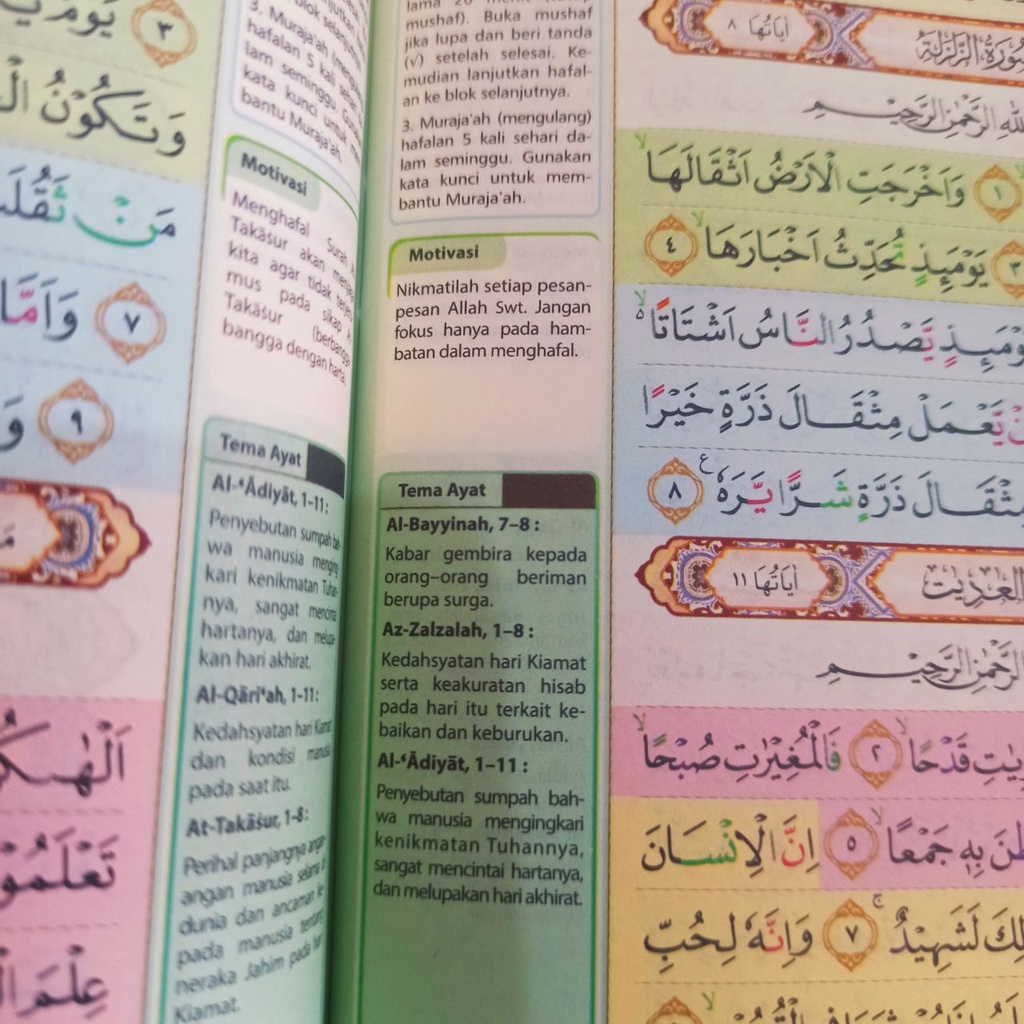 ٣
وَتَكُوْنُ
مَنْ ثَقُلَتْ
٧ وَاَمَّا
٩
اَلْهٰىكُمُ
تَعْلَمُوْنَ
عِلْمَ
3. Muraja'ah
hafalan 5 kali
lam seminggu.
kata kunci untuk
bantu Muraja'ah.
Motivasi
Menghafal Surah
Takāṡur akan
kita agar tidak
mus pada sikap
Takāṡur
bangga dengan harta.
Tema Ayat
Al-‘Ādiyāt, 1-11:
Penyebutan sumpah bah-
wa manusia menging-
kari kenikmatan Tuhan-
nya, sangat mencintai
hartanya, dan melupa-
kan hari akhirat.
Al-Qāri‘ah, 1-11:
Kedahsyatan hari Kiamat
dan kondisi manusia
pada saat itu.
At-Takāṡur, 1-8:
Perihal panjangnya angan-
angan manusia selama di
dunia dan ancaman
pada manusia tentang
neraka Jahim pada hari
Kiamat.
mushaf). Buka mushaf
jika lupa dan beri tanda
(√) setelah selesai. Ke-
mudian lanjutkan hafal-
an ke blok selanjutnya.
3. Muraja'ah (mengulang)
hafalan 5 kali sehari da-
lam seminggu. Gunakan
kata kunci untuk mem-
bantu Muraja'ah.
Motivasi
Nikmatilah setiap pesan-
pesan Allah Swt. Jangan
fokus hanya pada ham-
batan dalam menghafal.
Tema Ayat
Al-Bayyinah, 7–8 :
Kabar gembira kepada
orang–orang beriman
berupa surga.
Az-Zalzalah, 1–8 :
Kedahsyatan hari Kiamat
serta keakuratan hisab
pada hari itu terkait ke-
baikan dan keburukan.
Al-‘Ādiyāt, 1–11 :
Penyebutan sumpah bah-
wa manusia mengingkari
kenikmatan Tuhannya,
sangat mencintai hartanya,
dan melupakan hari akhirat.
سُوْرَةُ الزَّلْزَلَةِ اٰيَاتُهَا ٨
الرَّحْمٰنِ الرَّحِيْمِ
١ وَاَخْرَجَتِ الْاَرْضُ اَثْقَالَهَا
٣ يَوْمَىِٕذٍ تُحَدِّثُ اَخْبَارَهَا ٤
يَوْمَىِٕذٍ يَّصْدُرُ النَّاسُ اَشْتَاتًا
يَّعْمَلْ مِثْقَالَ ذَرَّةٍ خَيْرًا
مِثْقَالَ ذَرَّةٍ شَرًّا يَّرَهٗ ٨
العٰديٰت اٰيَاتُهَا ١١
الرَّحْمٰنِ الرَّحِيْمِ
قَدْحًا ٢ فَالْمُغِيْرٰتِ صُبْحًا
بِهٖ جَمْعًا ٥ اِنَّ الْاِنْسَانَ
لَشَهِيْدٌ ٧ وَاِنَّهٗ لِحُبِّ